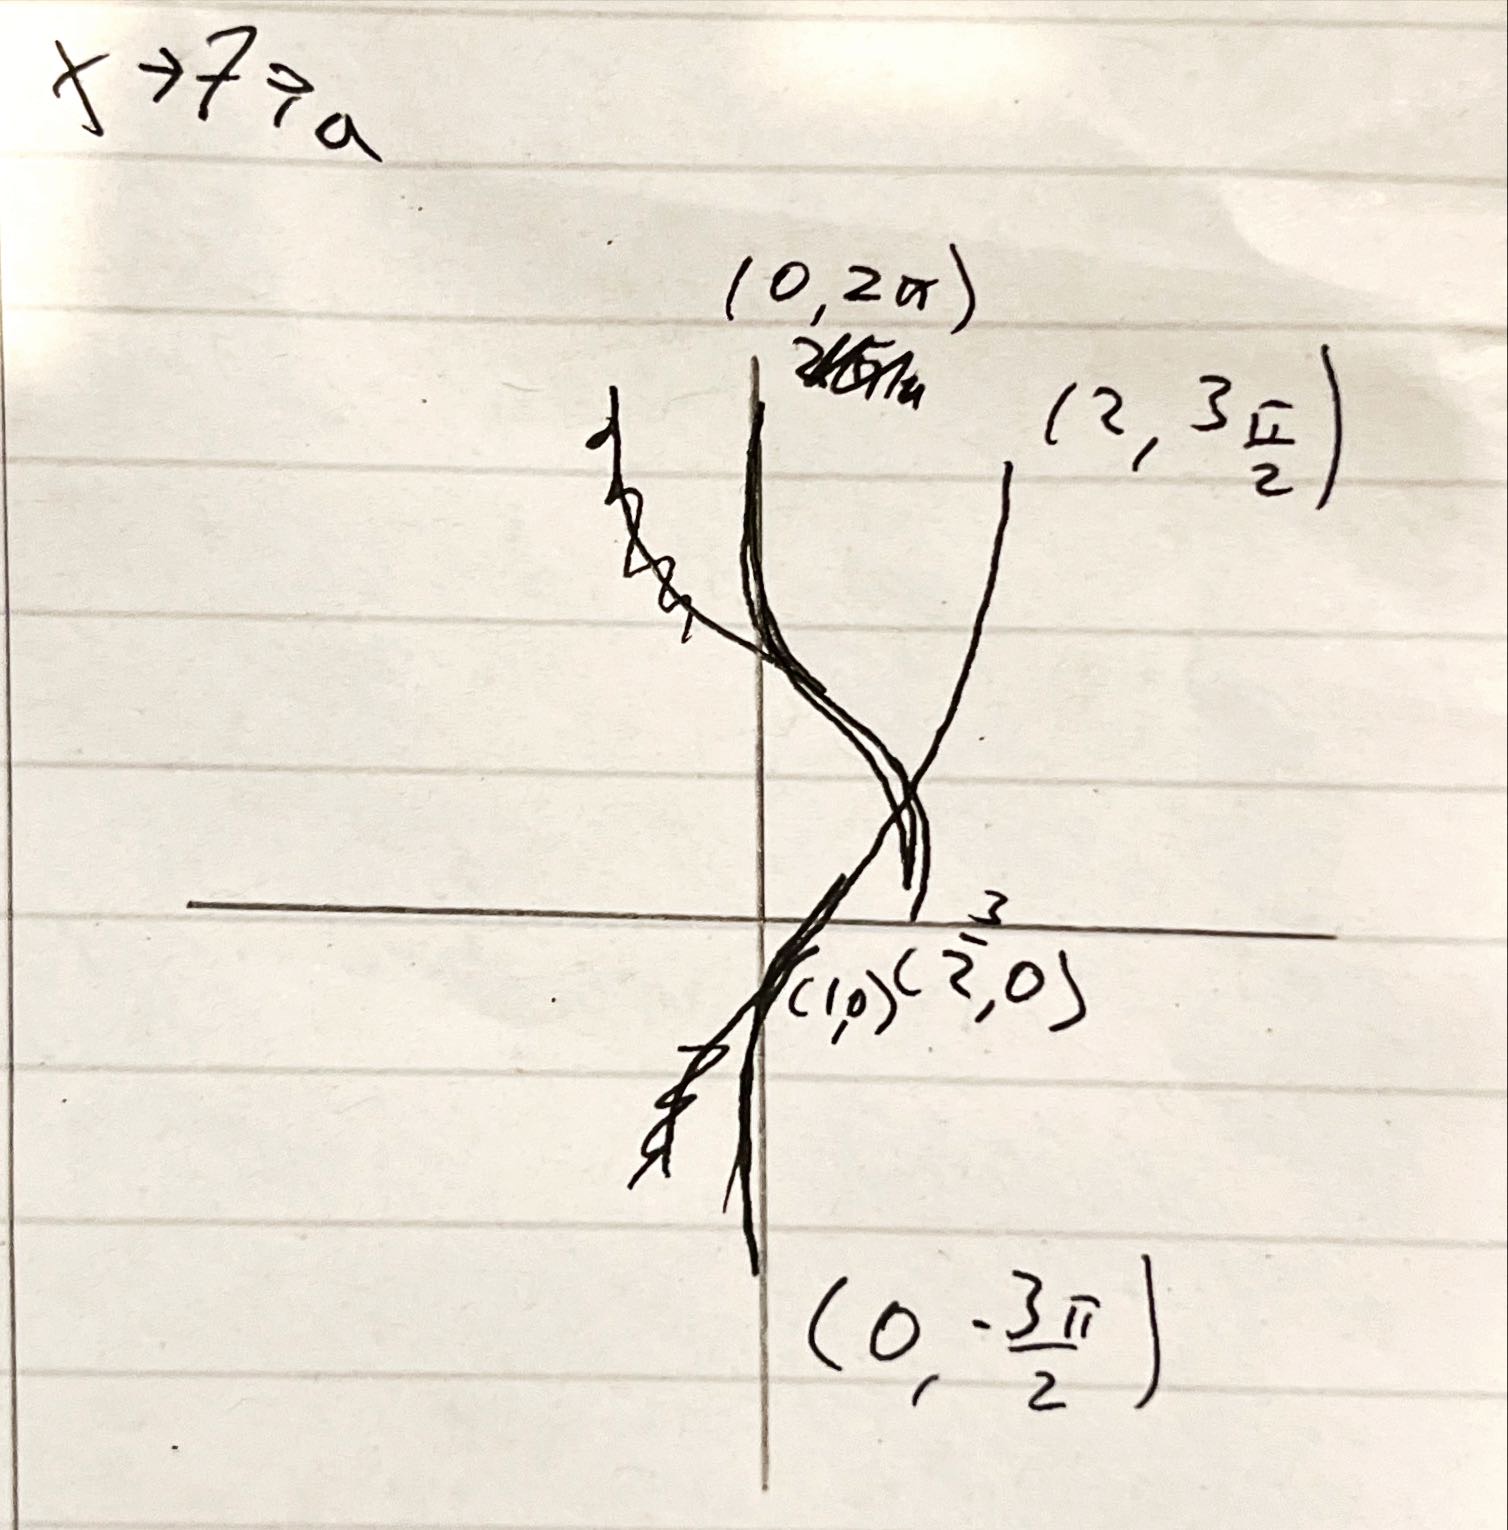 x → 7 → a
(0, 2π)
(2, 3π/2)
(1,0) (3/2, 0)
(0, -3π/2)